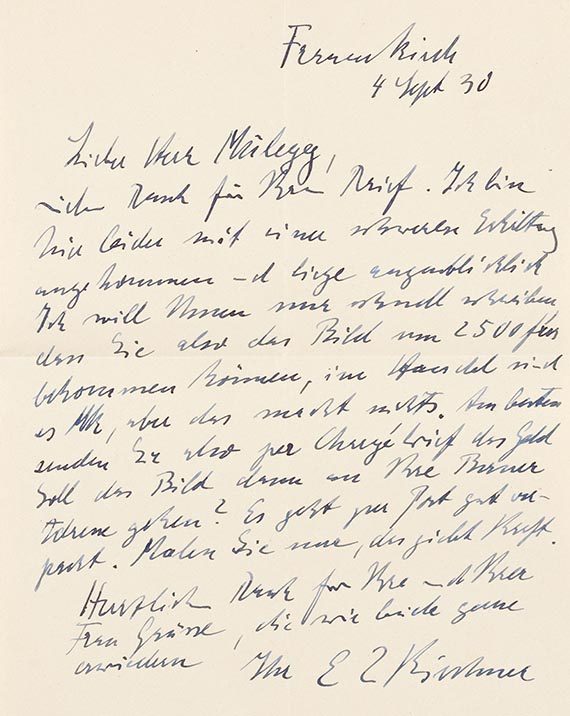 Frauenkirch
4 Sept 30
Lieber Herr Mülegg,
vielen Dank für Ihren Brief. Ich bin
hier leider mit einer schweren Erkältung
angekommen und liege augenblicklich
Ich will Ihnen nur schnell schreiben
dass Sie also das Bild um 2500 frcs
bekommen können, im Handel sind
es Mk, aber das macht nichts. Am besten
senden Sie also per Chargébrief das Geld
Soll das Bild dann an Ihre Berner
Adresse gehen? Es geht per Post gut ver-
packt. Malen Sie nur, das giebt Kraft.
Herzlichen Dank für Ihre und Ihrer
Frau Grüsse, die wir beide gerne
erwiedern Ihr E L Kirchner